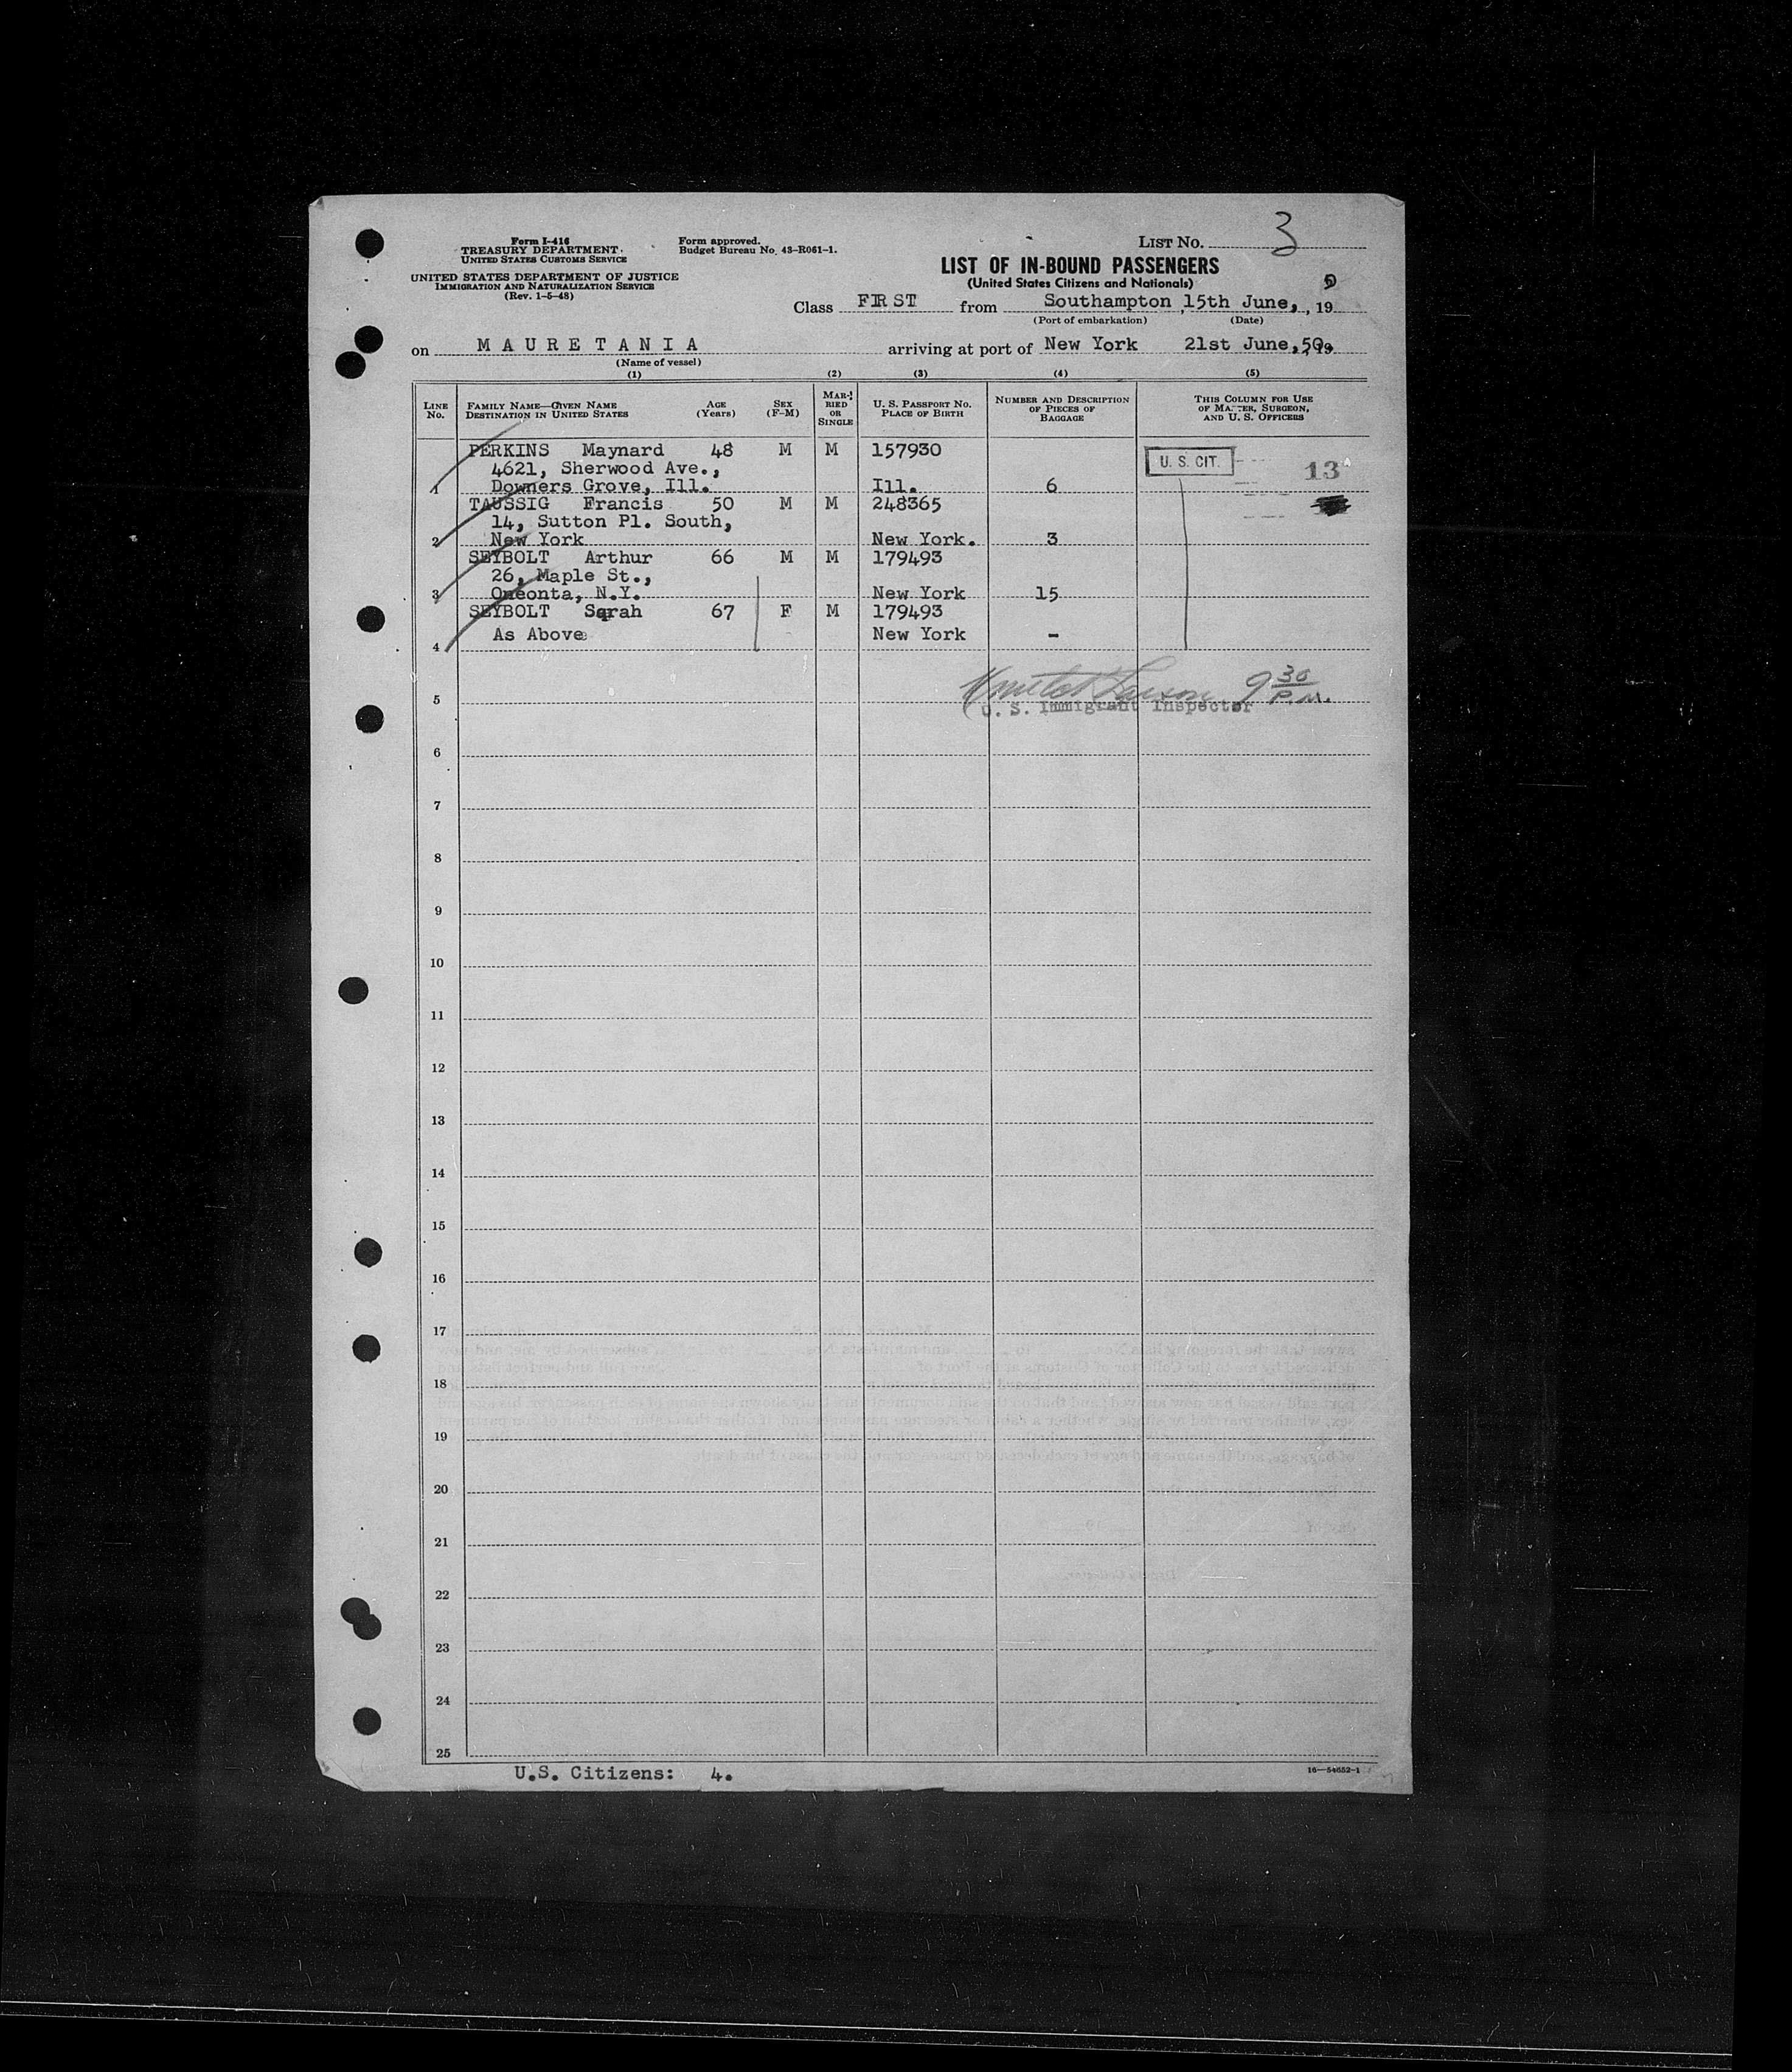 Form I-416
TREASURY DEPARTMENT
UNITED STATES CUSTOMS SERVICE
UNITED STATES DEPARTMENT OF JUSTICE
IMMIGRATION AND NATURALIZATION SERVICE
(Rev. 1-5-48)
Form approved.
Budget Bureau No. 43-R061-1.
LIST No. 3
LIST OF IN-BOUND PASSENGERS
(United States Citizens and Nationals)
Class FIRST from Southampton, 15th June, , 19
(Port of embarkation) (Date)
on MAURETANIA arriving at port of New York 21st June, 50.
(Name of vessel)
(1) (2) (3) (4) (5)
LINE No. FAMILY NAME—GIVEN NAME DESTINATION IN UNITED STATES AGE (Years) SEX (F-M) MARRIED OR SINGLE U. S. PASSPORT No. PLACE OF BIRTH NUMBER AND DESCRIPTION OF PIECES OF BAGGAGE THIS COLUMN FOR USE OF MASTER, SURGEON, AND U. S. OFFICERS
PERKINS Maynard 48 M M 157930 U. S. CIT. 13
4621, Sherwood Ave.,
1 Downers Grove, Ill. Ill. 6
TAUSSIG Francis 50 M M 248365
14, Sutton Pl. South,
2 New York New York. 3
SEYBOLT Arthur 66 M M 179493
26, Maple St.,
3 Oneonta, N.Y. New York 15
SEYBOLT Sarah 67 F M 179493
4 As Above New York -
9 30 P.M.
5 U. S. Immigrant Inspector
6
7
8
9
10
11
12
13
14
15
16
17
18
19
20
21
22
23
24
25
U.S. Citizens: 4.
16—54652-1